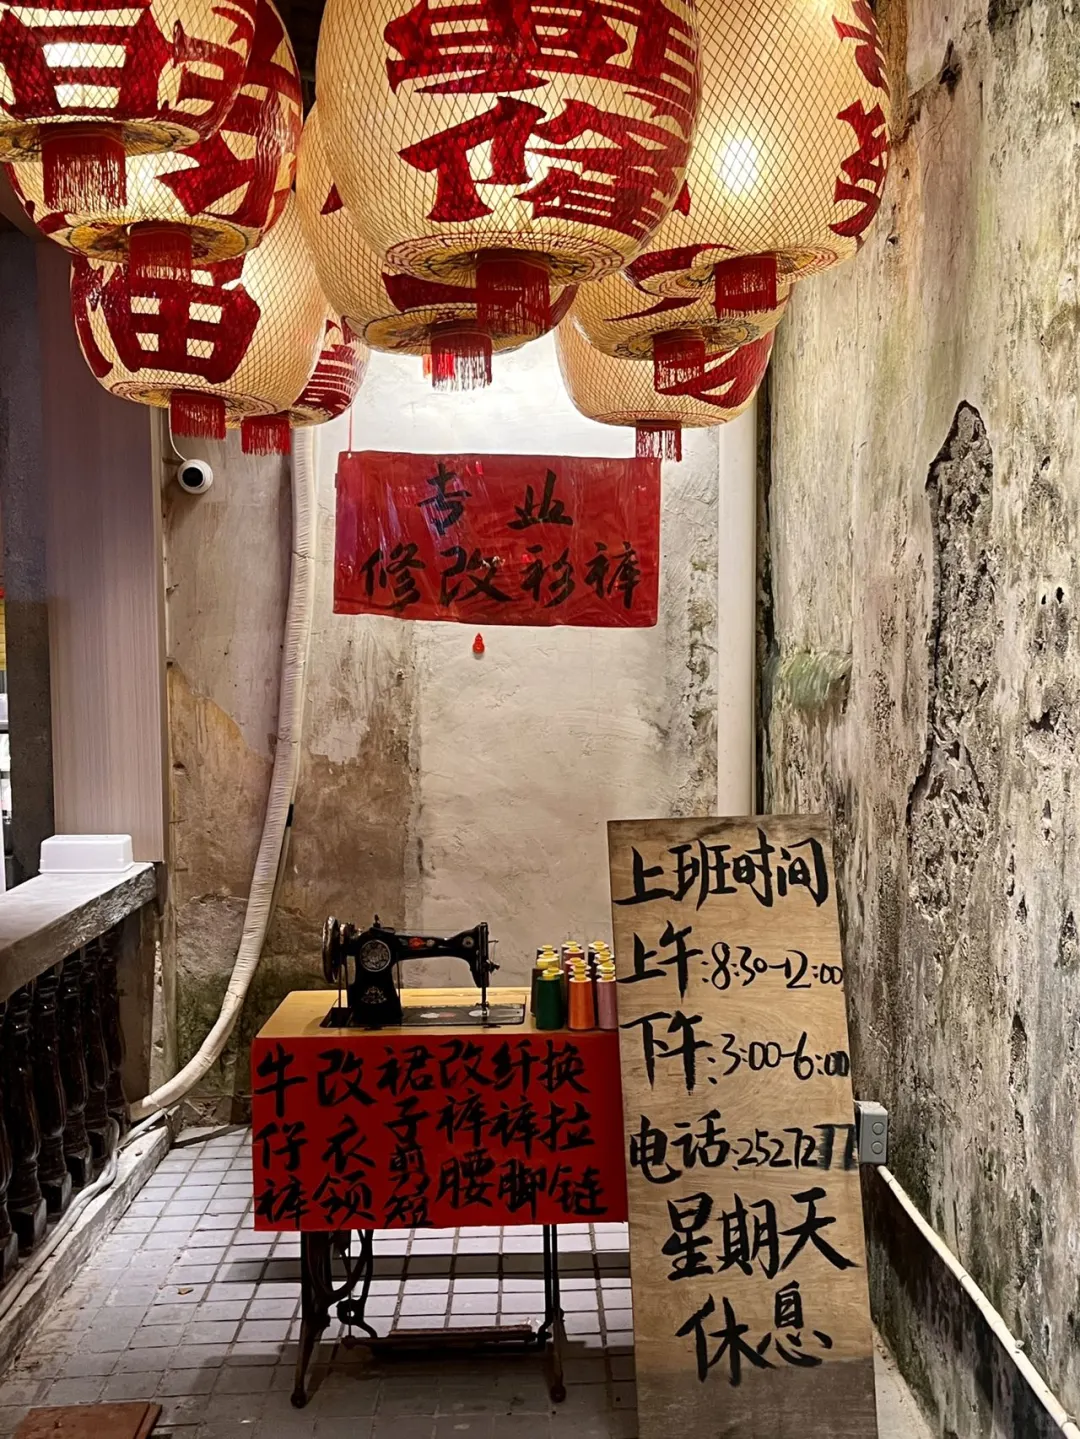 专业
修改衫裤
牛仔裤
改衣领
裙子剪短
改裤腰
纤裤脚
换拉链
上班时间
上午:8:30-12:00
下午:3:00-6:00
电话:2527277
星期天
休息